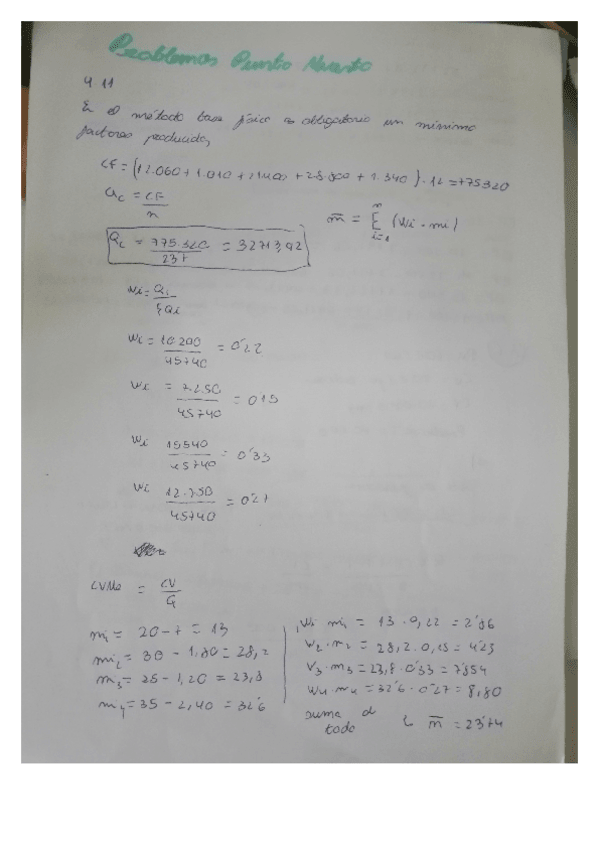 Problemas Punto Muerto
4 11
El método base física es obligatorio un mínimo
factores producidos
CF = (12.060 + 1.010 + + 28.800 + 2.340) · 12 = 775320
Qc = CF / n
m̄ = Σ i=1 n (Wi · mi)
Qc = 775.320 / = 32713,92
Wi = Qi / ΣQi
Wi = 10200 / 45740 = 0'22
Wi = 7.250 / 45740 = 015
Wi 15540 / 45740 = 0'33
Wi 12.750 / 45740 = 0'27
CVMe = CV / Q
m1 = 20 - 7 = 13
mi2 = 30 - 1,80 = 28,2
m3 = 25 - 1,20 = 23,8
m4 = 35 - 2,40 = 32'6
W1 m1 = 13 · 0,22 = 2'86
W2 · m2 = 28,2 · 0,15 = 4'23
V3 · m3 = 23,8 · 0'33 = 7'854
W4 · m4 = 32'6 · 0'27 = 8,80
suma d
todo m̄ = 23'74